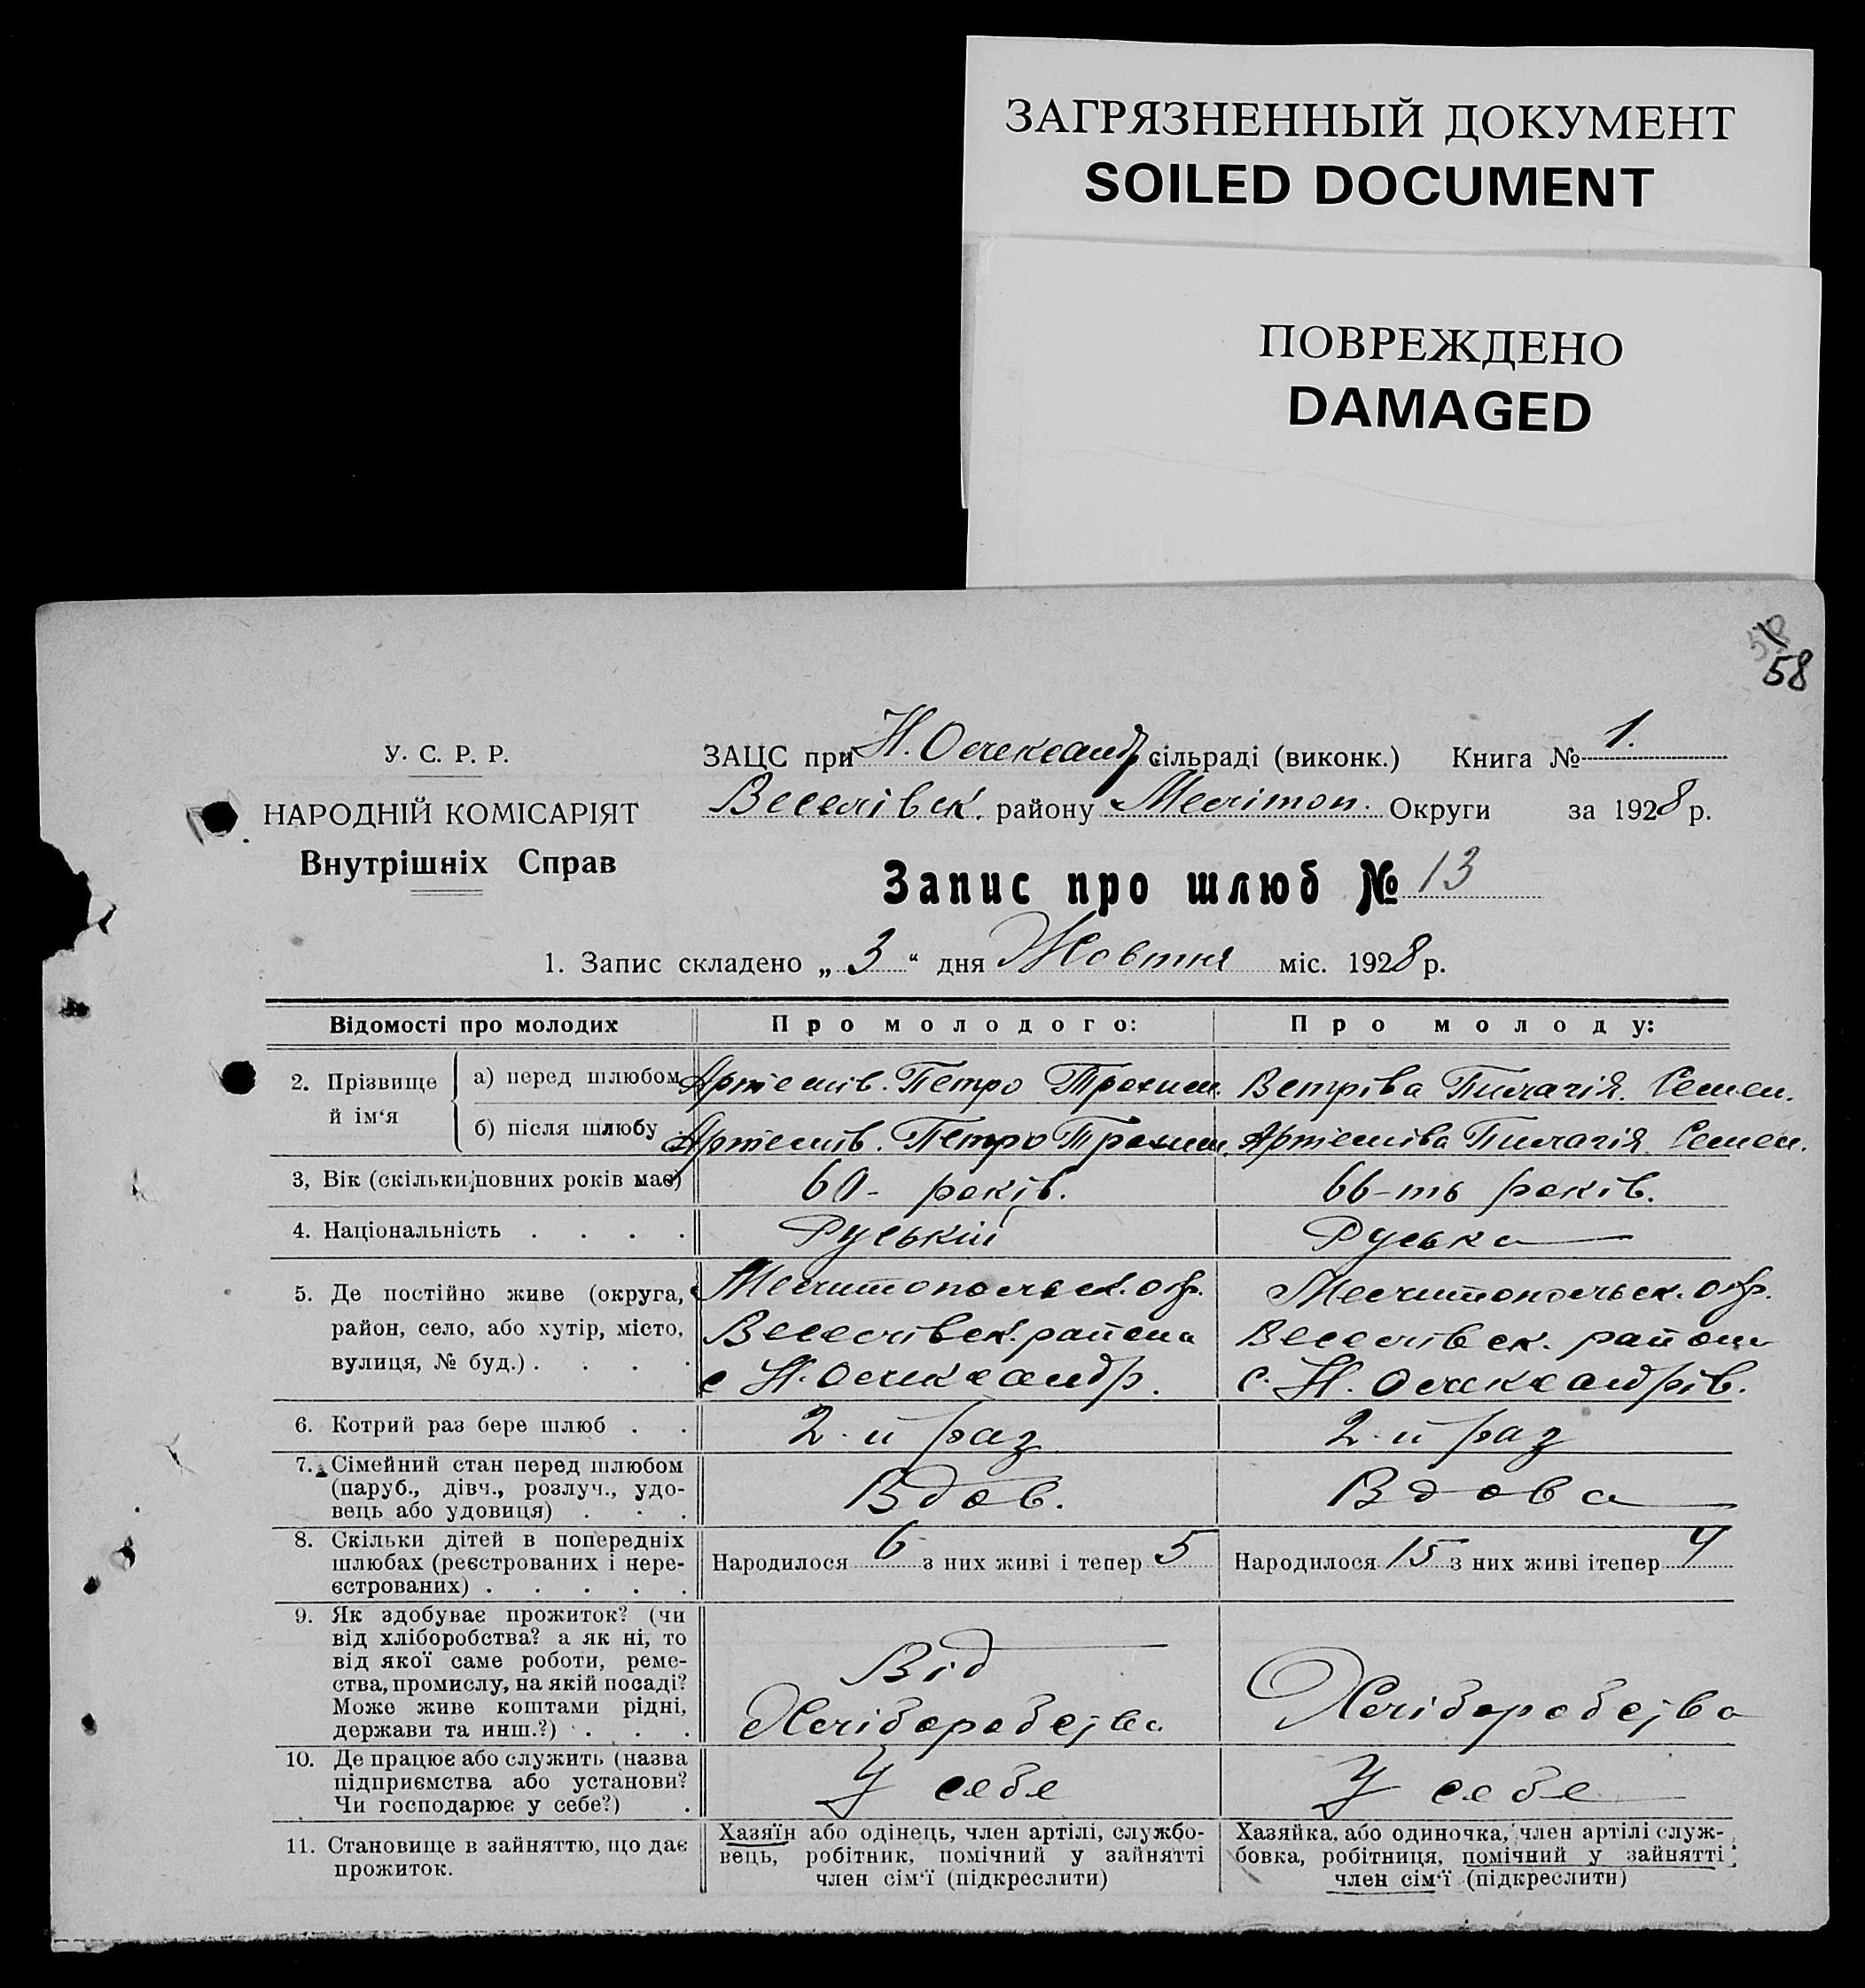 ЗАГРЯЗНЕННЫЙ ДОКУМЕНТ
SOILED DOCUMENT
ПОВРЕЖДЕНО
DAMAGED
58
У. С. Р. Р.
НАРОДНІЙ КОМІСАРІЯТ
Внутрішніх Справ
ЗАЦС при Н. Олександр сільраді (виконк.) Книга № 1.
Веселівск. району Мелітоп. Округи за 1928 р.
Запис про шлюб № 13
1. Запис складено „ 3 “ дня Жовтня міс. 1928 р.
Відомості про молодих Про молодого: Про молоду:
2. Прізвище й ім‘я
а) перед шлюбом Артемів. Петро Трохим. Ветріва Пилагія. Семен.
б) після шлюбу Артемів. Петро Трохим. Артеміва Пилагія Семен.
3, Вік (скільки повних років має) 60- років. 66-ть років.
4. Національність . . . . Руській Руська
5. Де постійно живе (округа, Мелитопольск. окр. Мелитопольск. окр.
район, село, або хутір, місто, Веселівск. района Веселівск. района
вулиця, № буд.) . . . . с Н. Олександр. с. Н. Олександрів.
6. Котрий раз бере шлюб . . 2-й раз 2-й раз
7. Сімейний стан перед шлюбом
(паруб., дівч., розлуч., удо-
вець або удовиця) . . . Вдов. Вдова
8. Скільки дітей в попередніх
шлюбах (реєстрованих і нере-
єстрованих) . . . . .
Народилося 6 з них живі і тепер 5 Народилося 15 з них живі ітепер 4
9. Як здобуває прожиток? (чи
від хліборобства? а як ні, то
від якої саме роботи, реме-
ства, промислу, на якій посаді?
Може живе коштами рідні,
держави та инш.?) . . .
Від
Хліборобства Хліборобства
10. Де працює або служить (назва
підприємства або установи?
Чи господарює у себе?) .
У себе У себе
11. Становище в зайняттю, що дає
прожиток.
Хазяїн або одінець, член артілі, службо-
вець, робітник, помічний у зайнятті
член сім‘ї (підкреслити)
Хазяйка, або одиночка, член артілі служ-
бовка, робітниця, помічний у зайнятті
член сім‘ї (підкреслити)